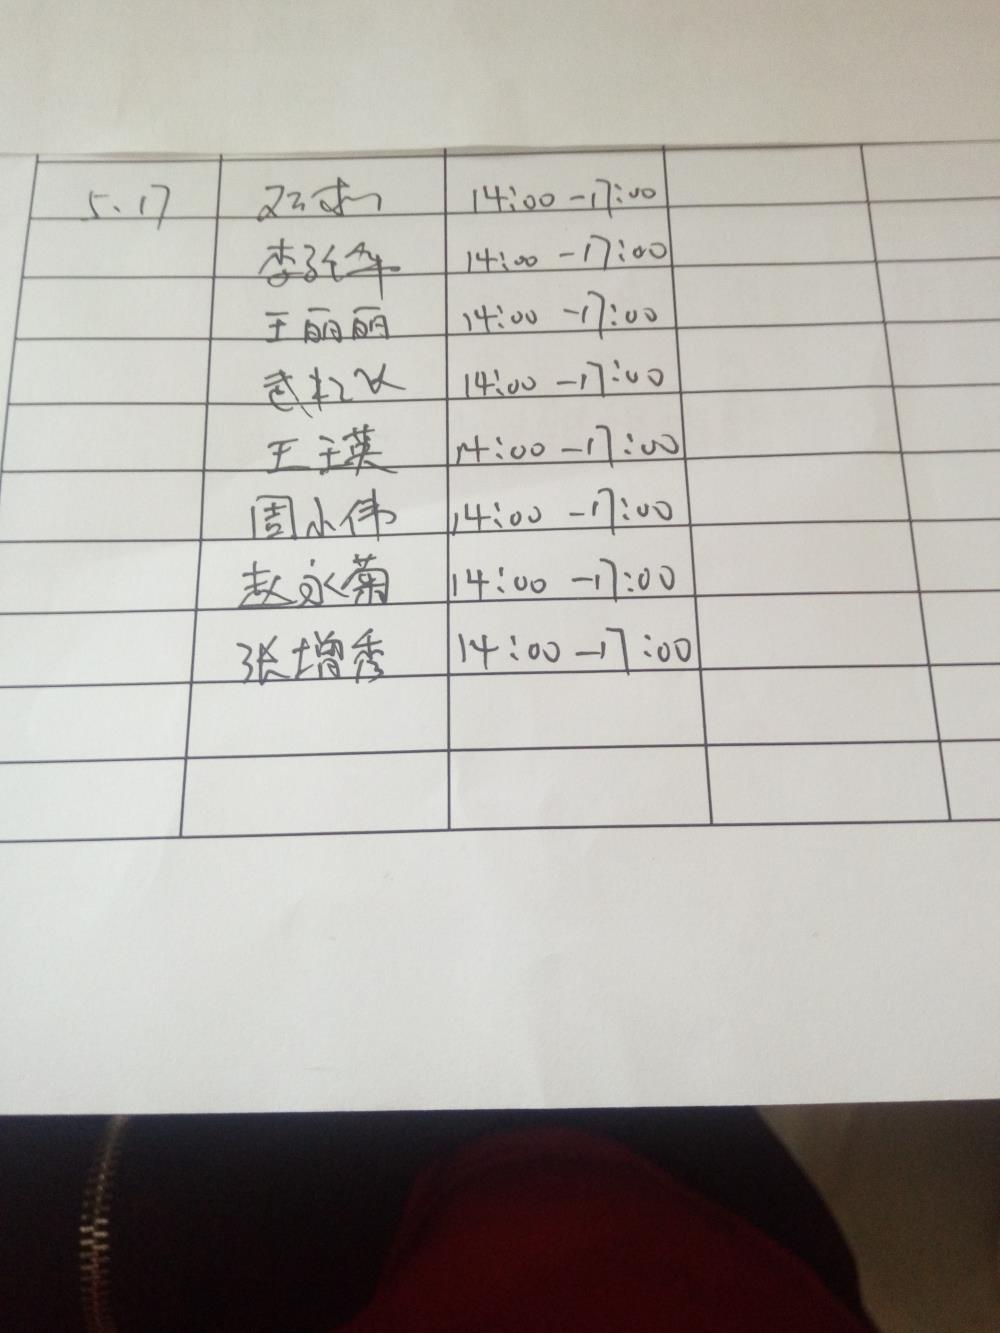 5.17 14:00-17:00
李 14:00-17:00
王丽丽 14:00-17:00
武 14:00-17:00
王玉英 14:00-17:00
周小伟 14:00-17:00
赵永菊 14:00-17:00
张增秀 14:00-17:00